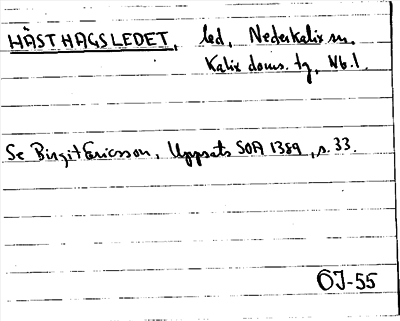 HÄSTHAGSLEDET, led, Nederkalix sn,
Kalix doms. tg, Nb. l.
Se Birgit Ericsson, Uppsats SOA 1389, s. 33.
ÖJ-55